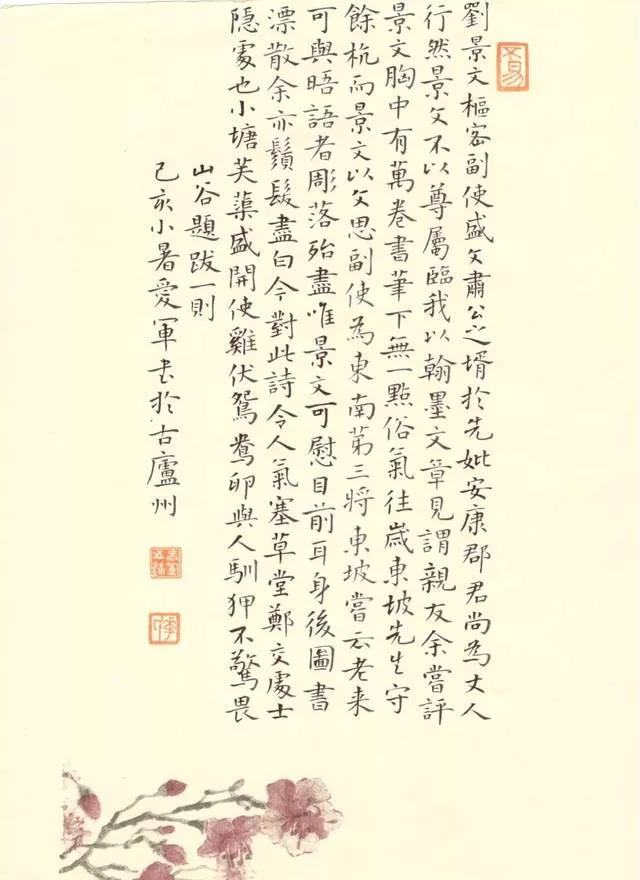 劉景文樞密副使盛文肅公之壻於先妣安康郡君尚為丈人
行然景文不以尊屬臨我以翰墨文章見謂親友余嘗評
景文胸中有萬卷書筆下無一點俗氣往歲東坡先生守
餘杭而景文以文思副使為東南第三將東坡嘗云老来
可與晤語者彫落殆盡唯景文可慰目前耳身後圖書
漂散余亦鬚髮盡白今對此詩令人氣塞草堂鄭交處士
隐處也小塘芙蕖盛開使雞伏鴛鴦卵與人馴狎不驚畏
山谷題跋一則
己亥小暑愛軍書於古廬州